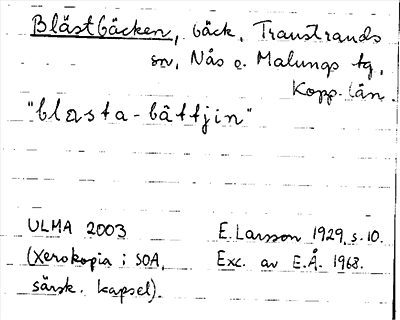 Blästbäcken, bäck, Transtrands
sn, Nås o. Malungs tg,
Kopp. län.
"blasta-bättjin"
ULMA 2003
(Xerokopia i SOA,
särsk. kapsel).
E. Larsson 1929, s. 10.
Exc. av E.Å. 1968.